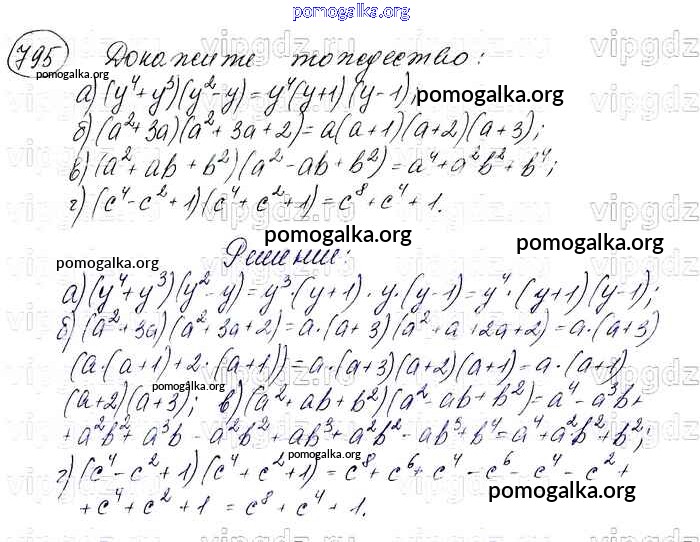 pomogalka.org
795 Докажите тождество:
pomogalka.org
а) (y⁴+y³)(y²-y)=y⁴(y+1)(y-1);
pomogalka.org
б) (a²+3a)(a²+3a+2)=a(a+1)(a+2)(a+3);
в) (a²+ab+b²)(a²-ab+b²)=a⁴+a²b²+b⁴;
pomogalka.org
г) (c⁴-c²+1)(c⁴+c²+1)=c⁸+c⁴+1.
pomogalka.org
pomogalka.org
pomogalka.org
Решение:
а) (y⁴+y³)(y²-y)=y³·(y+1)·y·(y-1)=y⁴·(y+1)(y-1);
б) (a²+3a)(a²+3a+2)=a·(a+3)(a²+a+2a+2)=a·(a+3)
(a·(a+1)+2·(a+1))=a·(a+3)(a+2)(a+1)=a·(a+1)
pomogalka.org
(a+2)(a+3); в) (a²+ab+b²)(a²-ab+b²)=a⁴-a³b+
+a²b²+a³b-a²b²+ab³+a²b²-ab³+b⁴=a⁴+a²b²+b²;
pomogalka.org
г) (c⁴-c²+1)(c⁴+c²+1)=c⁸+c⁶+c⁴-c⁶-c⁴-c²+
pomogalka.org
+c⁴+c²+1=c⁸+c⁴+1.
pomogalka.org
vipgdz.ru